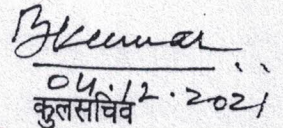 BKumar
04.12.2021
कुलसचिव